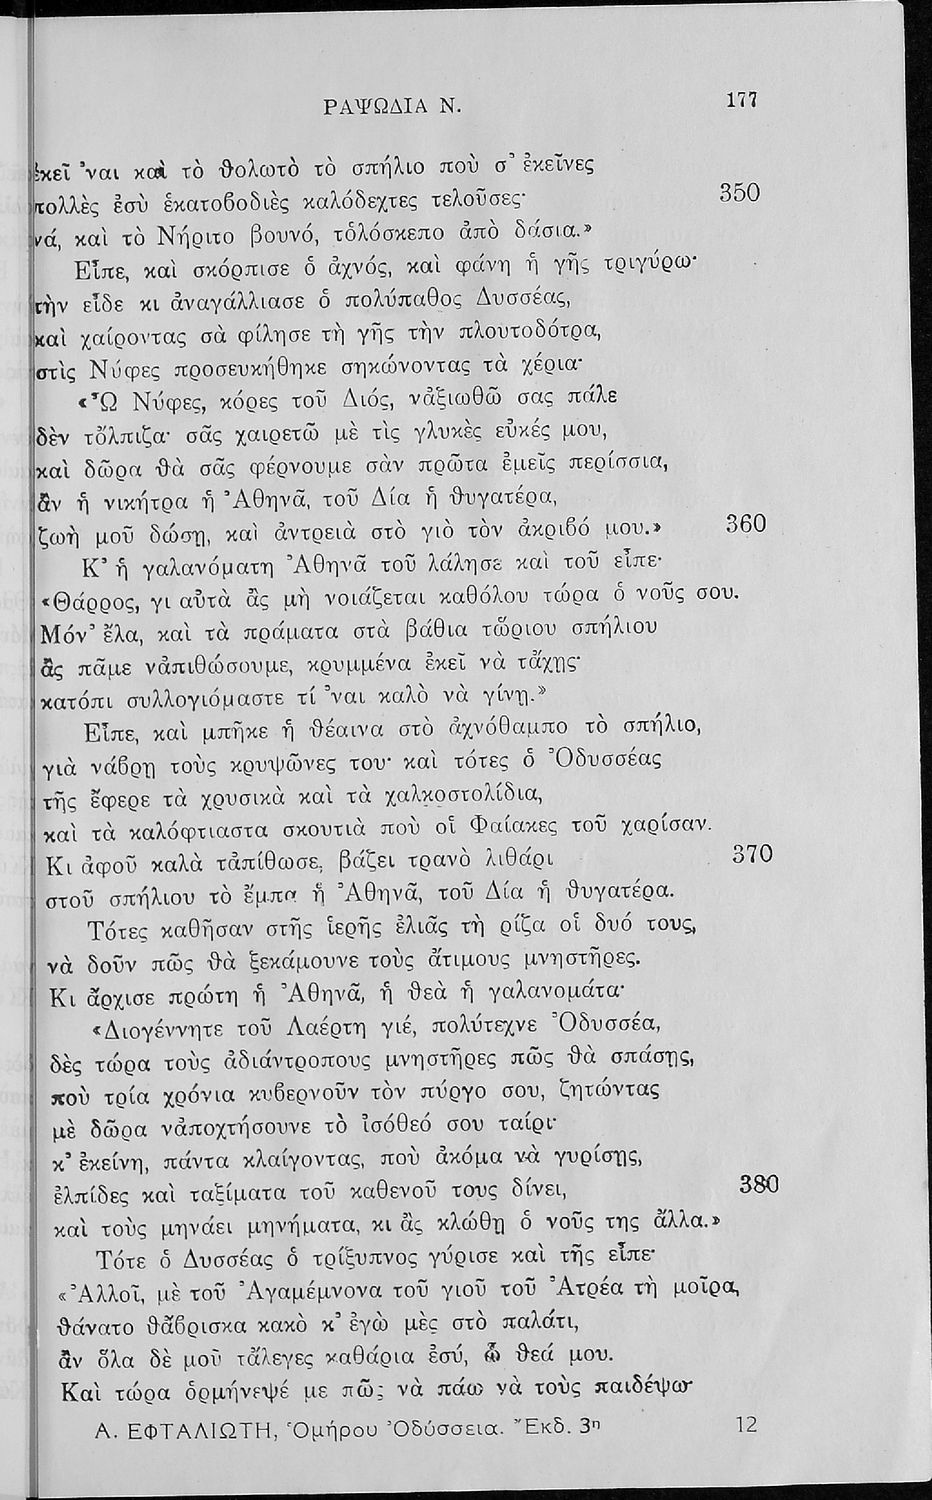 ΡΑΨΩΔΙΑ Ν. 177
ἐκεῖ ᾿ναι καὶ τὸ θολωτὸ τὸ σπήλιο ποὺ σ᾿ ἐκεῖνες
πολλὲς ἐσὺ ἑκατοβοδιὲς καλόδεχτες τελοῦσες· 350
νά, καὶ τὸ Νήριτο βουνό, τὁλόσκεπο ἀπὸ δάσια.»
Εἶπε, καὶ σκόρπισε ὁ ἀχνός, καὶ φάνη ἡ γῆς τριγύρω·
τὴν εἶδε κι ἀναγάλλιασε ὁ πολύπαθος Δυσσέας,
καὶ χαίροντας σὰ φίλησε τὴ γῆς τὴν πλουτοδότρα,
στὶς Νύφες προσευκήθηκε σηκώνοντας τὰ χέρια·
«Ὦ Νύφες, κόρες τοῦ Διός, νἀξιωθῶ σας πάλε
δὲν τὄλπιζα· σᾶς χαιρετῶ μὲ τὶς γλυκὲς εὐκές μου,
καὶ δῶρα θὰ σᾶς φέρνουμε σὰν πρῶτα ἐμεῖς περίσσια,
ἂν ἡ νικήτρα ἡ Ἀθηνᾶ, τοῦ Δία ἡ θυγατέρα,
ζωὴ μοῦ δώσῃ, καὶ ἀντρειὰ στὸ γιὸ τὸν ἀκριβό μου.» 360
Κ᾿ ἡ γαλανόματη Ἀθηνᾶ τοῦ λάλησε καὶ τοῦ εἶπε·
«Θάρρος, γι αὐτὰ ἂς μὴ νοιάζεται καθόλου τώρα ὁ νοῦς σου.
Μόν᾿ ἔλα, καὶ τὰ πράματα στὰ βάθια τὥριου σπήλιου
ἂς πᾶμε νἀπιθώσουμε, κρυμμένα ἐκεῖ νὰ τἄχῃς·
κατόπι συλλογιόμαστε τί ᾿ναι καλὸ νὰ γίνῃ.»
Εἶπε, καὶ μπῆκε ἡ θέαινα στὸ ἀχνόθαμπο τὸ σπήλιο,
γιὰ νάβρῃ τοὺς κρυψῶνες του· καὶ τότες ὁ Ὀδυσσέας
τῆς ἔφερε τὰ χρυσικὰ καὶ τὰ χαλκοστολίδια,
καὶ τὰ καλόφτιαστα σκουτιὰ ποὺ οἱ Φαίακες τοῦ χαρίσαν.
Κι ἀφοῦ καλὰ τἀπίθωσε, βάζει τρανὸ λιθάρι 370
στοῦ σπήλιου τὸ ἔμπα ἡ Ἀθηνᾶ, τοῦ Δία ἡ θυγατέρα.
Τότες καθῆσαν στῆς ἱερῆς ἐλιᾶς τὴ ρίζα οἱ δυό τους,
νὰ δοῦν πῶς θὰ ξεκάμουνε τοὺς ἄτιμους μνηστῆρες.
Κι ἄρχισε πρώτη ἡ Ἀθηνᾶ, ἡ θεὰ ἡ γαλανομάτα·
«Διογέννητε τοῦ Λαέρτη γιέ, πολύτεχνε Ὀδυσσέα,
δὲς τώρα τοὺς ἀδιάντροπους μνηστῆρες πῶς θὰ σπάσῃς,
ποὺ τρία χρόνια κυβερνοῦν τὸν πύργο σου, ζητώντας
μὲ δῶρα νἀποχτήσουνε τὸ ἰσόθεό σου ταίρι·
κ᾿ ἐκείνη, πάντα κλαίγοντας, ποὺ ἀκόμα νὰ γυρίσῃς,
ἐλπίδες καὶ ταξίματα τοῦ καθενοῦ τους δίνει, 380
καὶ τοὺς μηνάει μηνήματα, κι ἂς κλώθῃ ὁ νοῦς της ἄλλα.»
Τότε ὁ Δυσσέας ὁ τρίξυπνος γύρισε καὶ τῆς εἶπε·
«Ἀλλοῖ, μὲ τοῦ Ἀγαμέμνονα τοῦ γιοῦ τοῦ Ἀτρέα τὴ μοῖρα,
θάνατο θἄβρισκα κακὸ κ᾿ ἐγὼ μὲς στὸ παλάτι,
ἂν ὅλα δὲ μοῦ τἄλεγες καθάρια ἐσύ, ὦ θεά μου.
Καὶ τώρα ὁρμήνεψέ με πῶς νὰ πάω νὰ τοὺς παιδέψω·
Α. ΕΦΤΑΛΙΩΤΗ, Ὁμήρου Ὀδύσσεια. Ἔκδ. 3η 12